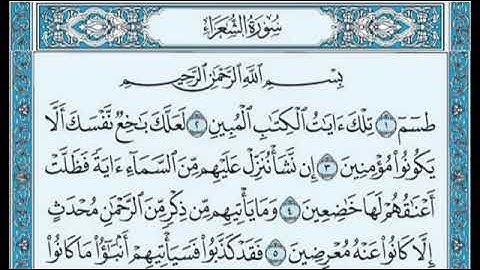 سُورَةُ الشُّعَرَاءِ
بِسْمِ اللَّهِ الرَّحْمَٰنِ الرَّحِيمِ
طسٓمٓ ١ تِلْكَ ءَايَٰتُ الْكِتَٰبِ الْمُبِينِ ٢ لَعَلَّكَ بَٰخِعٌ نَّفْسَكَ أَلَّا
يَكُونُوا۟ مُؤْمِنِينَ ٣ إِن نَّشَأْ نُنَزِّلْ عَلَيْهِم مِّنَ السَّمَآءِ ءَايَةً فَظَلَّتْ
أَعْنَٰقُهُمْ لَهَا خَٰضِعِينَ ٤ وَمَا يَأْتِيهِم مِّن ذِكْرٍ مِّنَ الرَّحْمَٰنِ مُحْدَثٍ
إِلَّا كَانُوا۟ عَنْهُ مُعْرِضِينَ ٥ فَقَدْ كَذَّبُوا۟ فَسَيَأْتِيهِمْ أَنۢبَٰٓؤُا۟ مَا كَانُوا۟